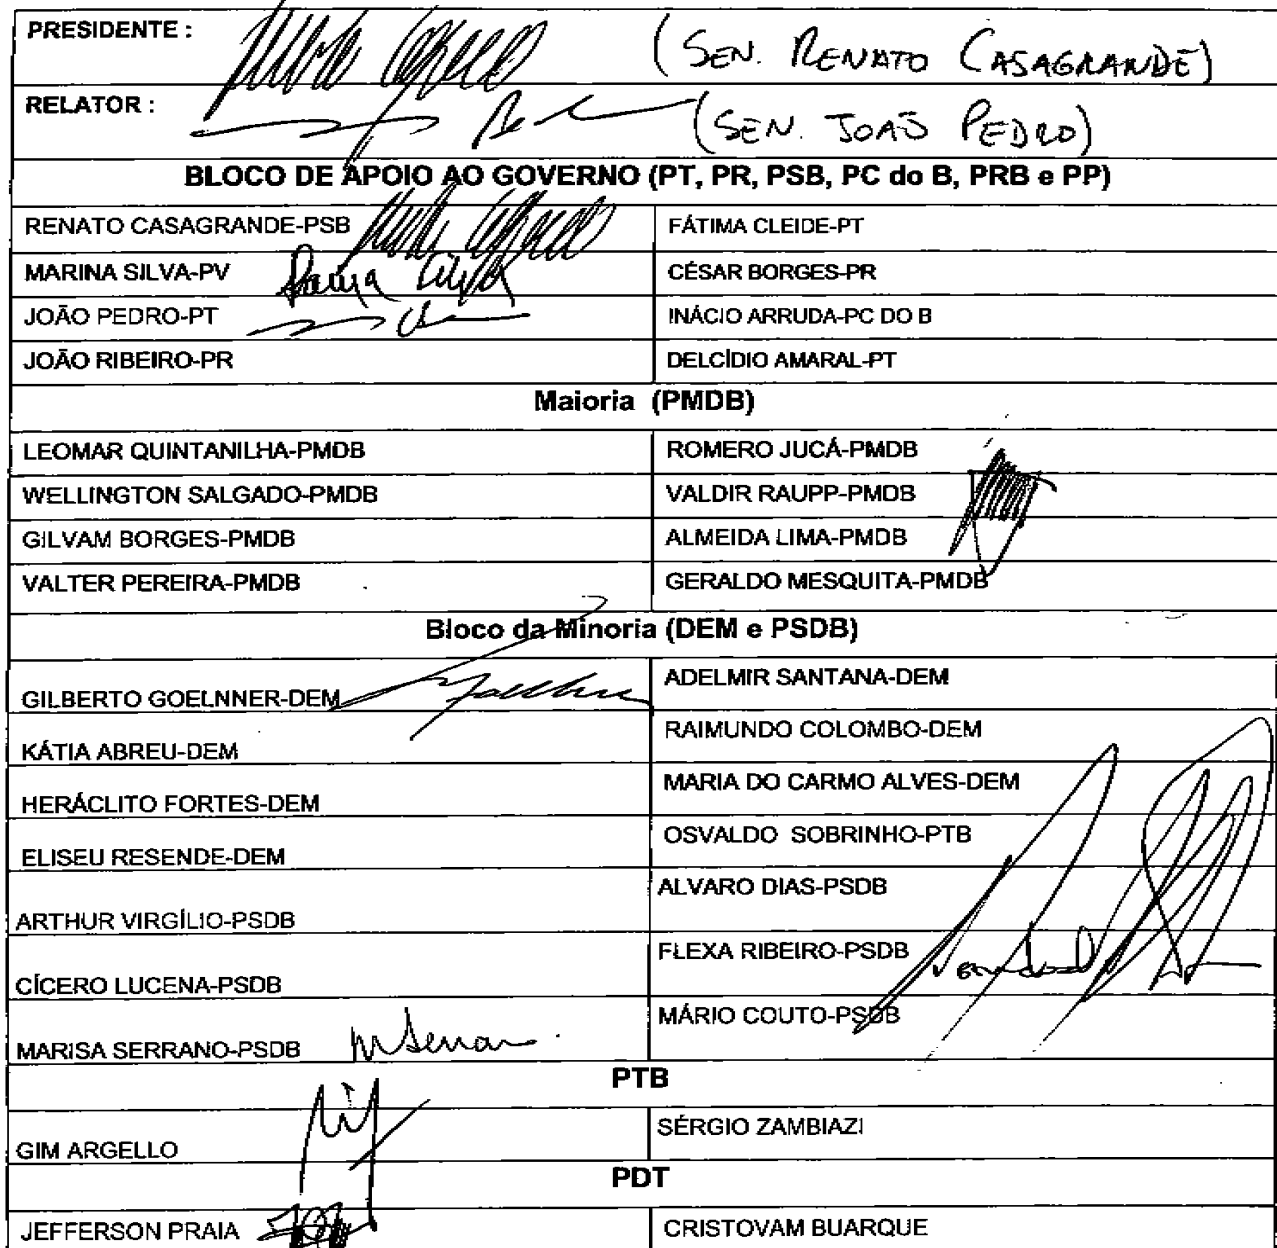 PRESIDENTE : (SEN. RENATO CASAGRANDE)
RELATOR : (SEN. JOÃO PEDRO)
BLOCO DE APOIO AO GOVERNO (PT, PR, PSB, PC do B, PRB e PP)
RENATO CASAGRANDE-PSB FÁTIMA CLEIDE-PT
MARINA SILVA-PV Marina Silva CÉSAR BORGES-PR
JOÃO PEDRO-PT INÁCIO ARRUDA-PC DO B
JOÃO RIBEIRO-PR DELCÍDIO AMARAL-PT
Maioria (PMDB)
LEOMAR QUINTANILHA-PMDB ROMERO JUCÁ-PMDB
WELLINGTON SALGADO-PMDB VALDIR RAUPP-PMDB
GILVAM BORGES-PMDB ALMEIDA LIMA-PMDB
VALTER PEREIRA-PMDB GERALDO MESQUITA-PMDB
Bloco da Minoria (DEM e PSDB)
GILBERTO GOELNNER-DEM ADELMIR SANTANA-DEM
KÁTIA ABREU-DEM RAIMUNDO COLOMBO-DEM
HERÁCLITO FORTES-DEM MARIA DO CARMO ALVES-DEM
ELISEU RESENDE-DEM OSVALDO SOBRINHO-PTB
ARTHUR VIRGÍLIO-PSDB ALVARO DIAS-PSDB
CÍCERO LUCENA-PSDB FLEXA RIBEIRO-PSDB
MARISA SERRANO-PSDB MÁRIO COUTO-PSDB
PTB
GIM ARGELLO SÉRGIO ZAMBIAZI
PDT
JEFFERSON PRAIA CRISTOVAM BUARQUE